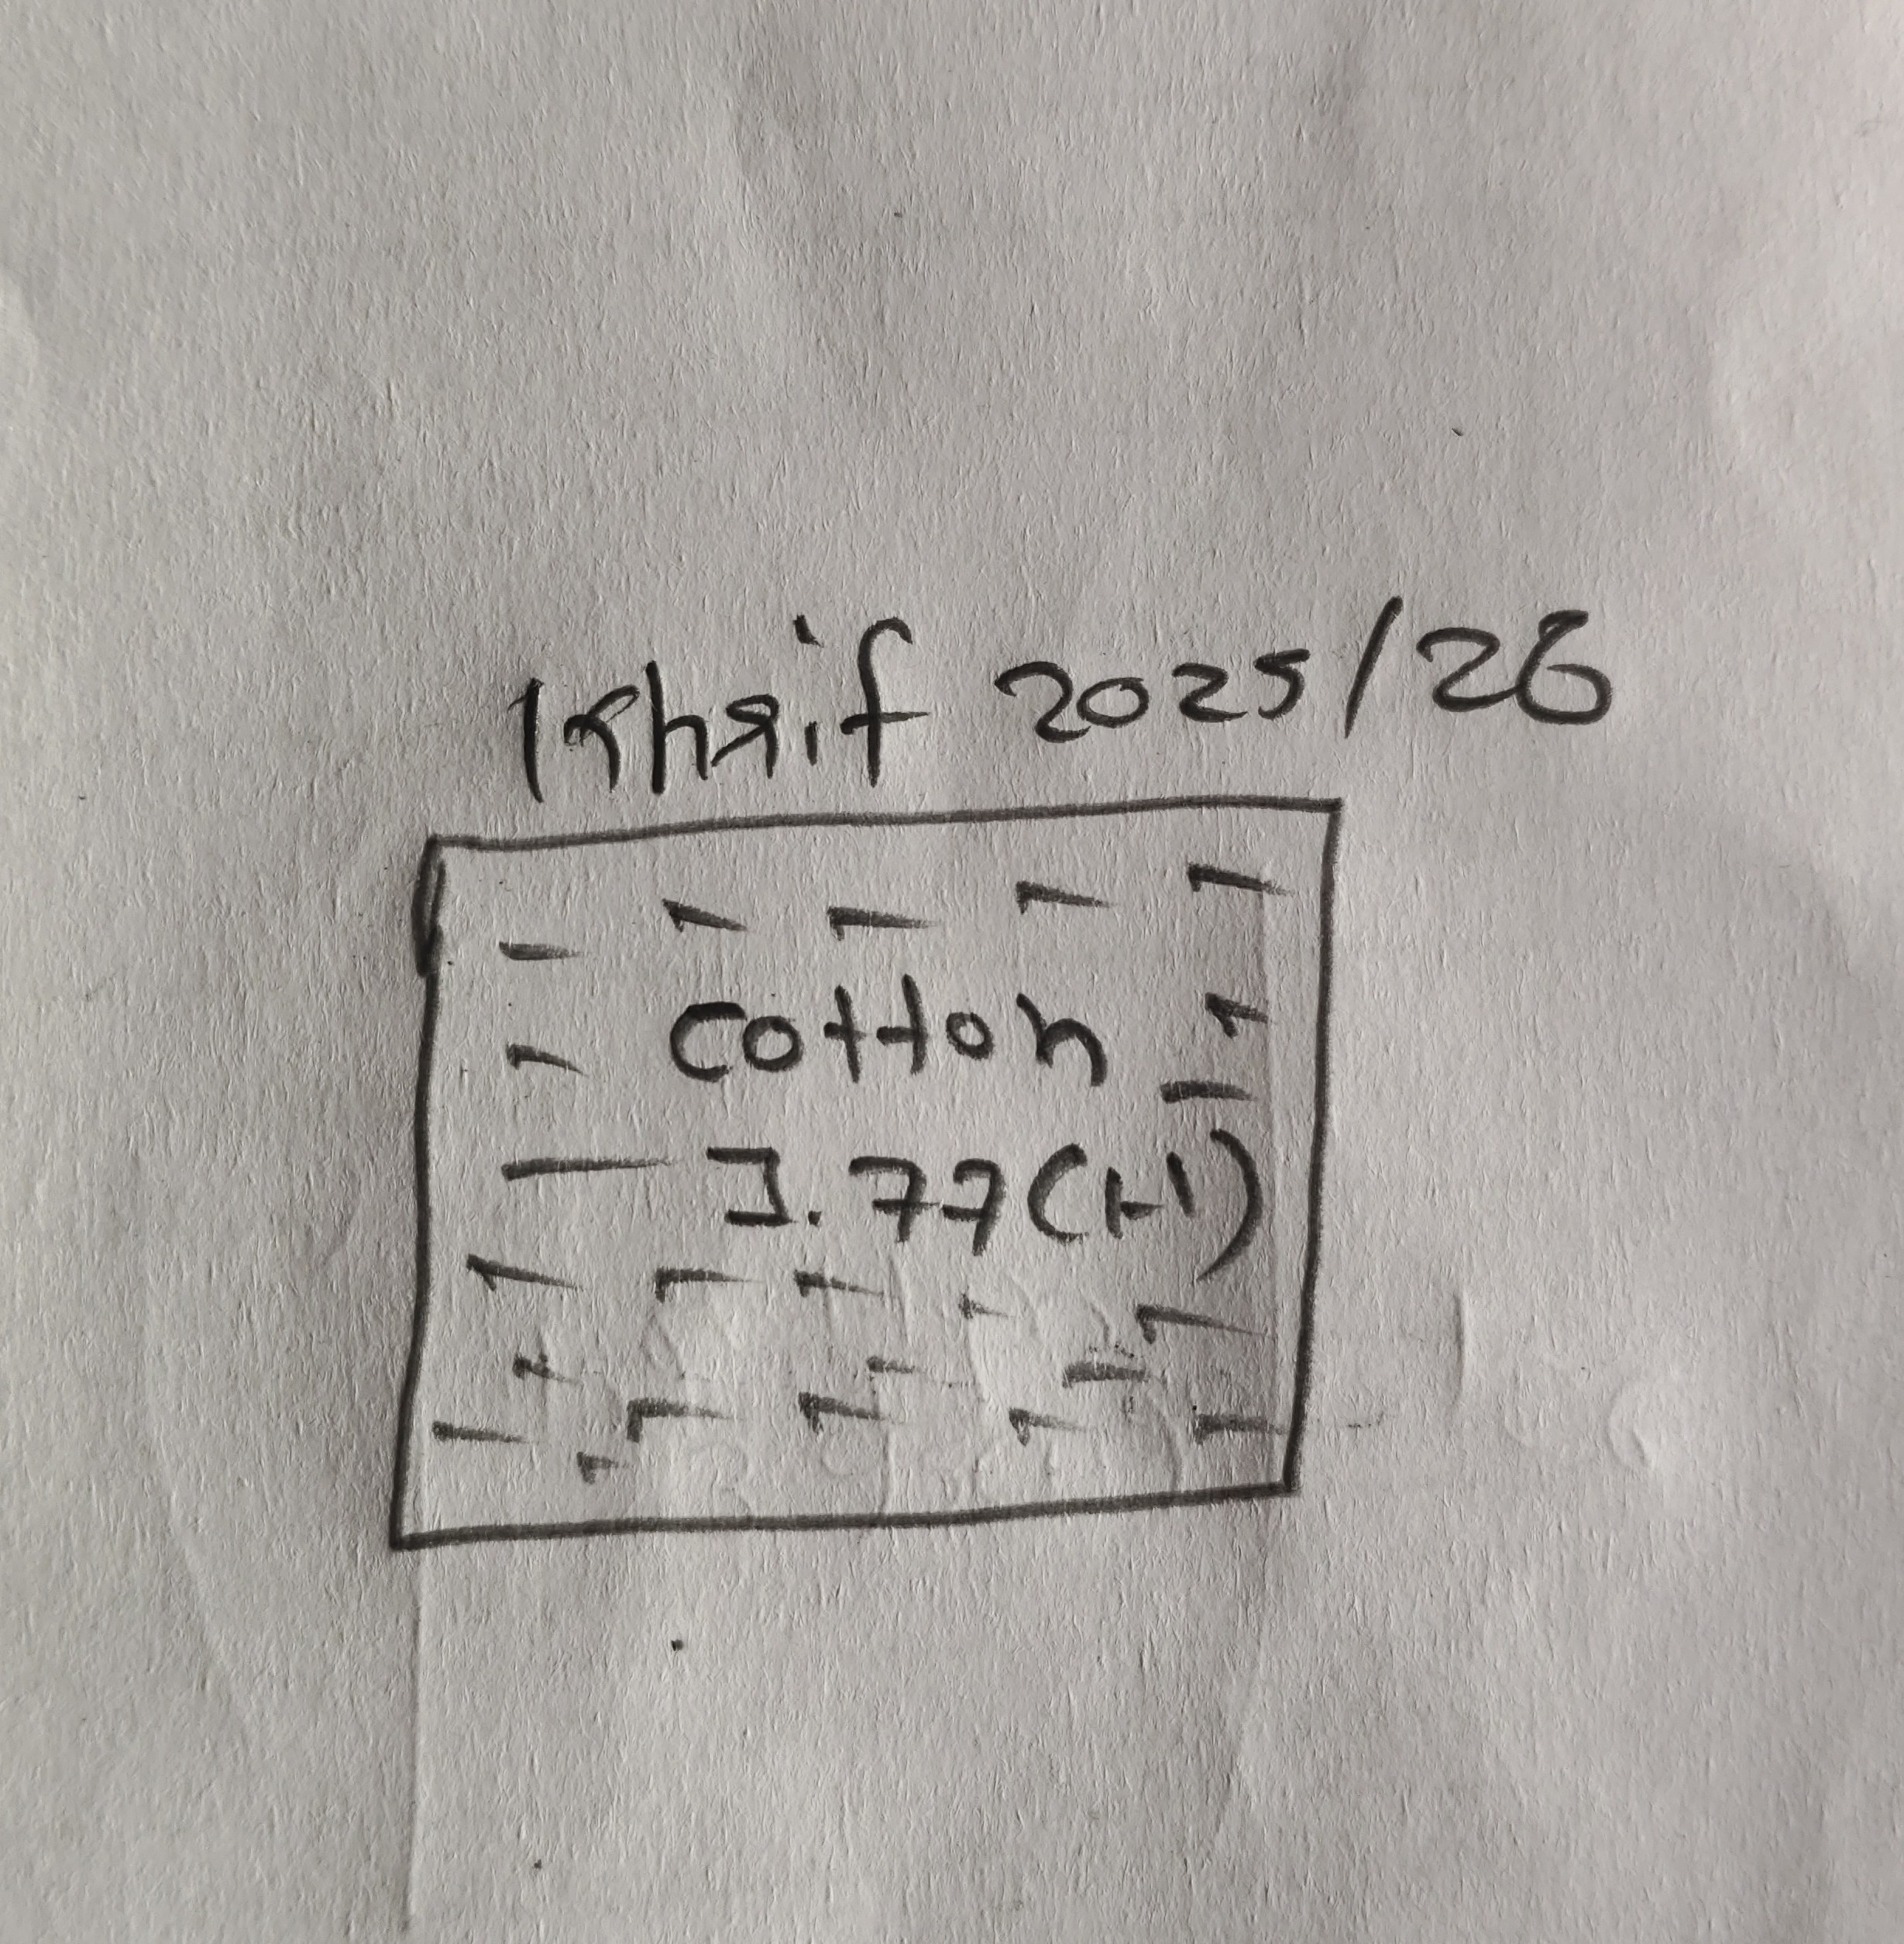 Khrif 2025/26
Cotton
1.77(H)